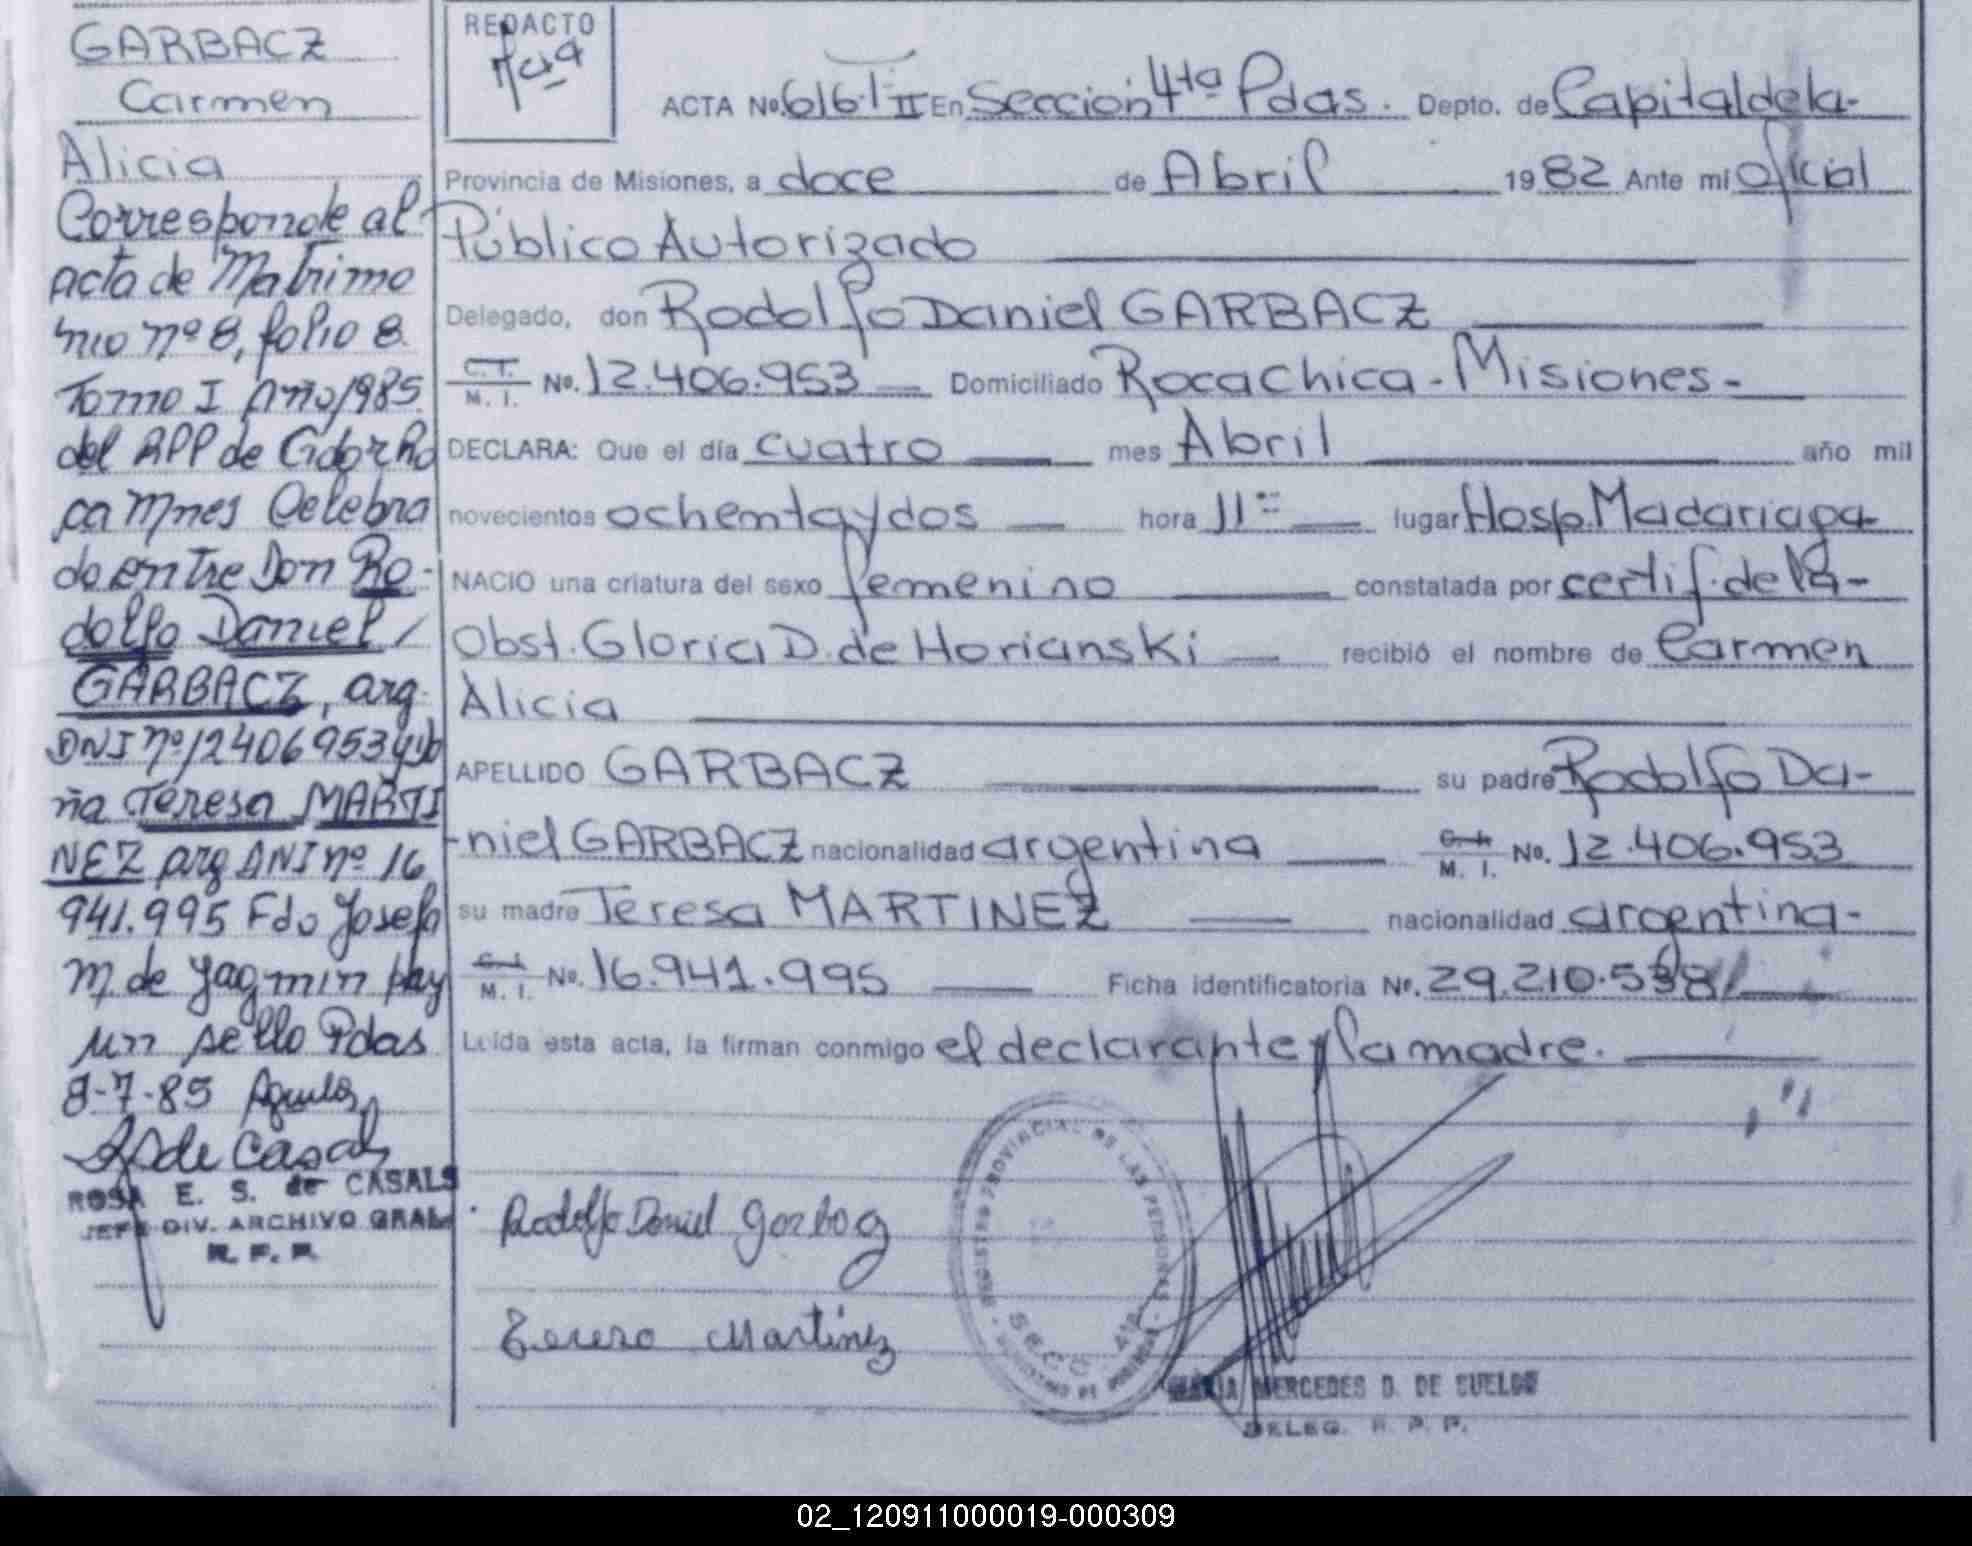 GARBACZ
Carmen
Alicia
Corresponde al
acta de Matrimo
nio nº 8, folio 8.
Tomo I Año 1985
del RPP de Gdor Ro
ca Mnes Celebra
do entre Don Ro-
dolfo Daniel
GARBACZ, arg.
DNI nº 12406953 y do
ña Teresa MARTI
NEZ arg DNI nº 16
941.995 Fdo Josefa
M. de Yagmin hay
un sello Pdas
8-7-85
ROSA E. S. de CASALS
JEFE DIV. ARCHIVO GRAL
R. P. P.
REDACTO
ACTA No. 616 T II En Sección 4ta Pdas. Depto. de Capital de la-
Provincia de Misiones, a doce de Abril 1982 Ante mi Oficial
Público Autorizado
Delegado, don Rodolfo Daniel GARBACZ
C.I. M. I. No. 12.406.953 Domiciliado Roca Chica - Misiones-
DECLARA: Que el día cuatro mes Abril año mil
novecientos ochenta y dos hora 11 lugar Hosp. Madariaga-
NACIO una criatura del sexo femenino constatada por certif. de la-
Obst. Gloria D. de Horianski recibió el nombre de Carmen
Alicia
APELLIDO GARBACZ su padre Rodolfo Da-
-niel GARBACZ nacionalidad argentina C.I. M. I. No. 12.406.953
su madre Teresa MARTINEZ nacionalidad argentina-
C.I. M. I. No. 16.941.995 Ficha identificatoria No. 29.210.538
Leída esta acta, la firman conmigo el declarante y la madre.
Rodolfo Daniel Garbacz
Teresa Martinez
REGISTRO PROVINCIAL DE LAS PERSONAS
SECC. 4ta
MARIA MERCEDES D. DE CUELOS
DELEG. R. P. P.
02_120911000019-000309